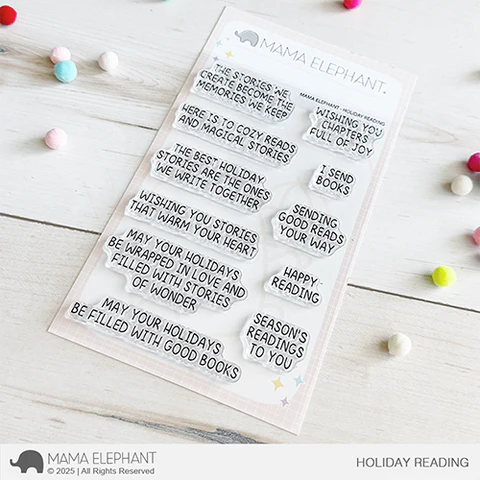 MAMA ELEPHANT.
MAMA ELEPHANT - HOLIDAY READING
THE STORIES WE
CREATE BECOME THE
MEMORIES WE KEEP
WISHING YOU
CHAPTERS
FULL OF JOY
HERE IS TO COZY READS
AND MAGICAL STORIES
I SEND
BOOKS
THE BEST HOLIDAY
STORIES ARE THE ONES
WE WRITE TOGETHER
SENDING
GOOD READS
YOUR WAY
WISHING YOU STORIES
THAT WARM YOUR HEART
HAPPY
READING
MAY YOUR HOLIDAYS
BE WRAPPED IN LOVE AND
FILLED WITH STORIES
OF WONDER
SEASON'S
READINGS
TO YOU
MAY YOUR HOLIDAYS
BE FILLED WITH GOOD BOOKS
MAMA ELEPHANT
© 2025 | All Rights Reserved
HOLIDAY READING